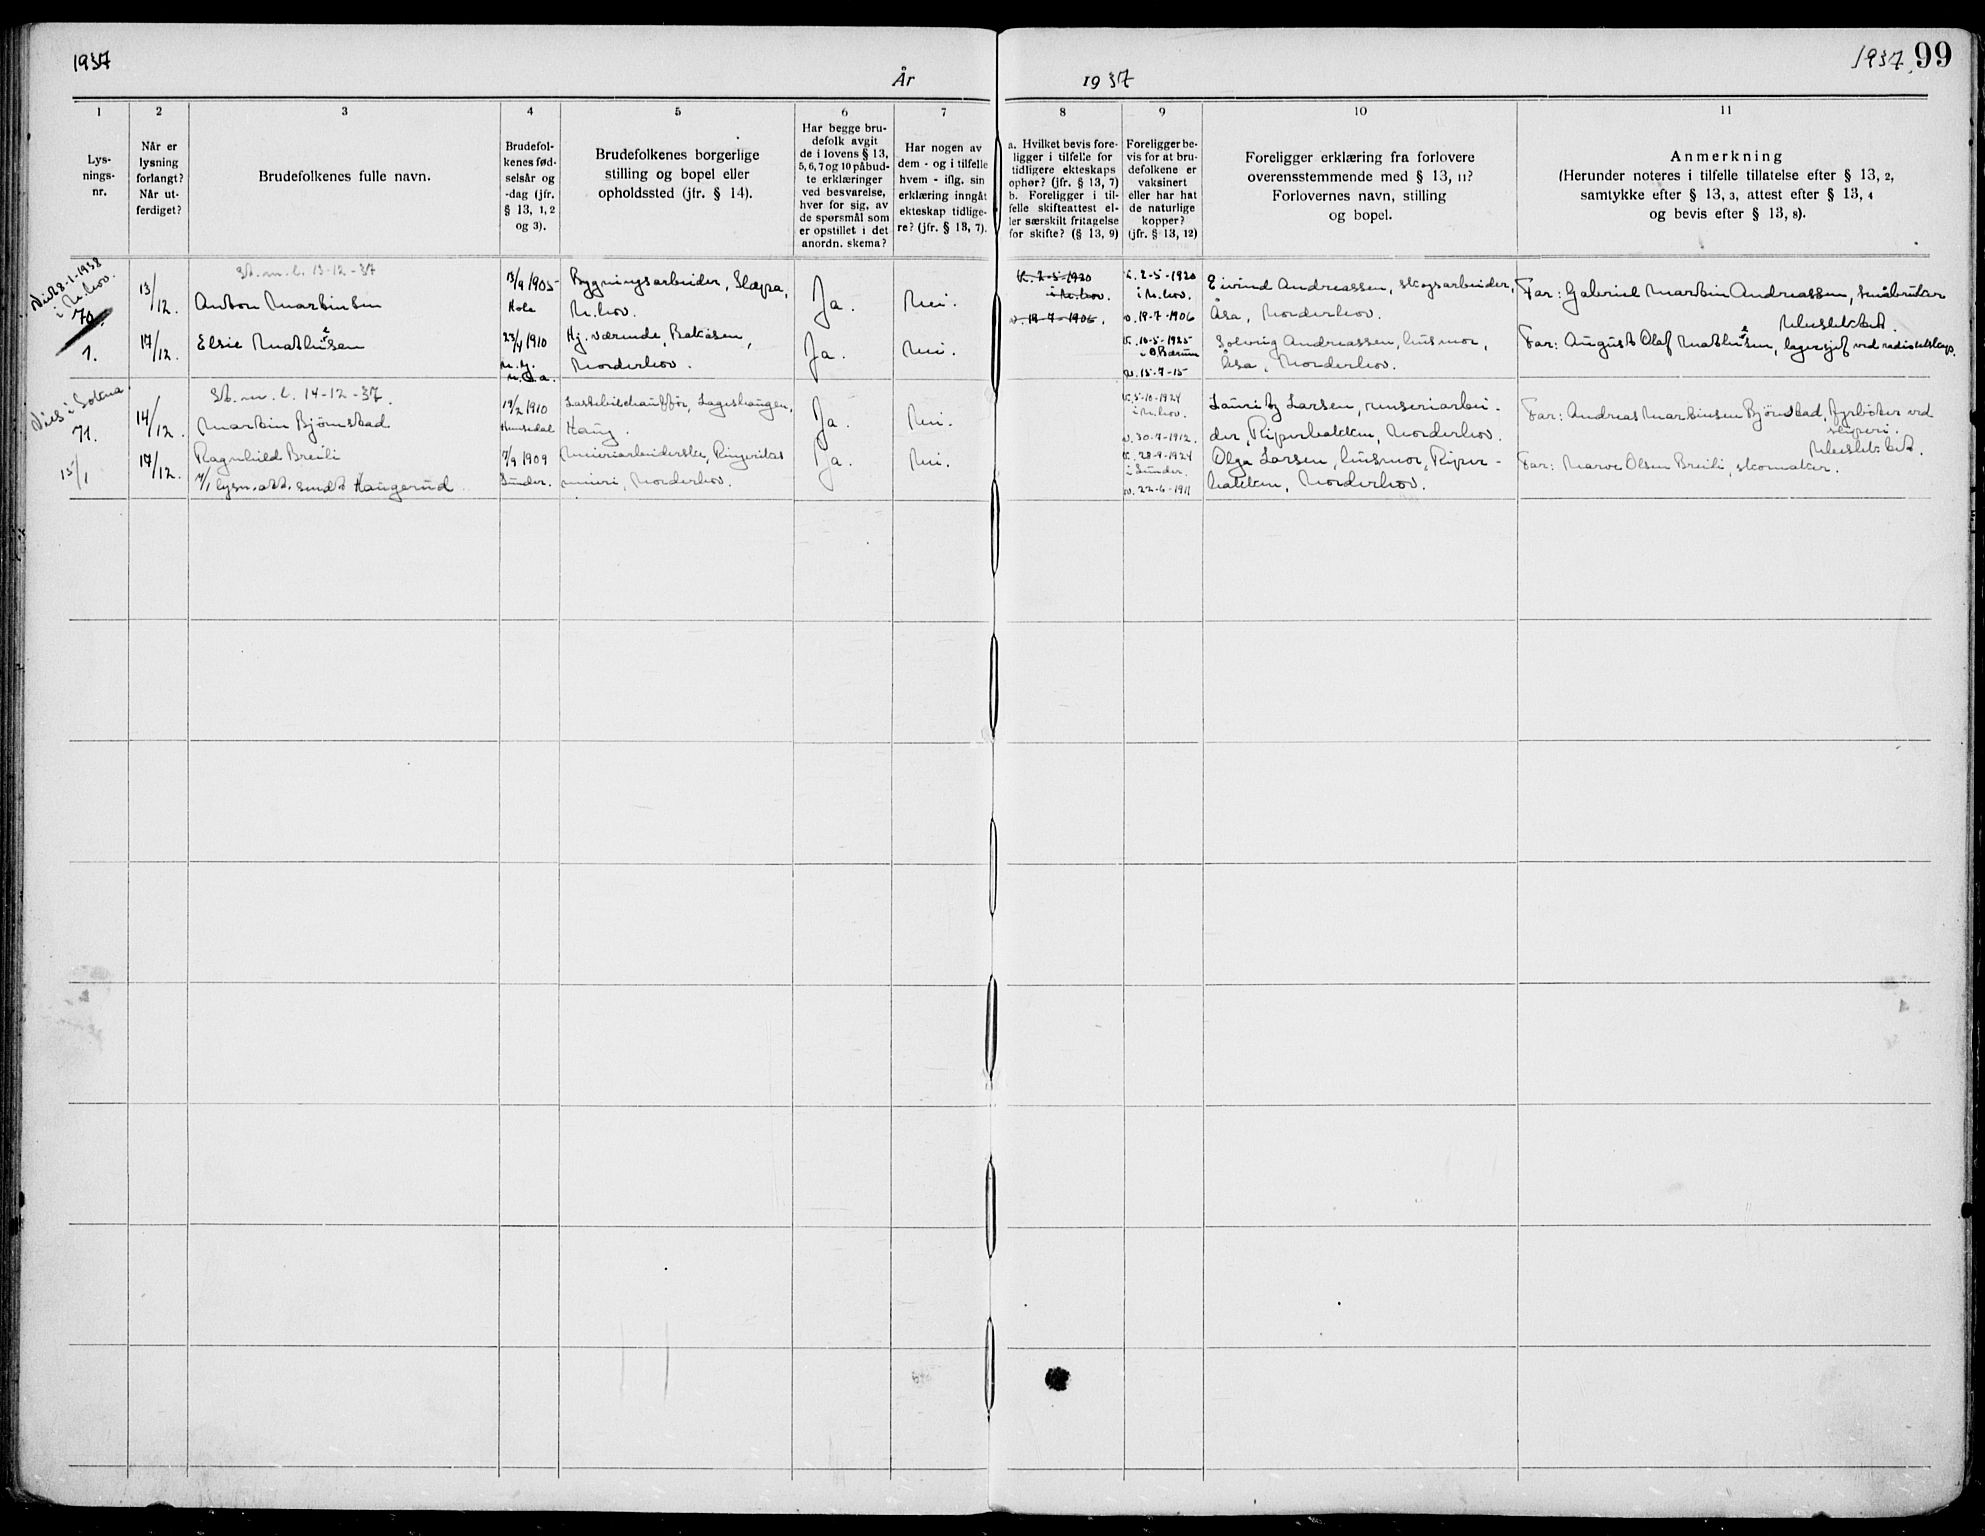 1937
År
1937
1937. 99
1
Lys-
nings-
nr.
2
Når er
lysning
forlangt?
Når ut-
ferdiget?
3
Brudefolkenes fulle navn.
4
Brudefol-
kenes fød-
selsår og
-dag (jfr.
§ 13, 1, 2
og 3).
5
Brudefolkenes borgerlige
stilling og bopel eller
opholdssted (jfr. § 14).
6
Har begge bru-
defolk avgit
de i lovens § 13,
5, 6, 7 og 10 påbud-
te erklæringer
ved besvarelse,
hver for sig, av
de spørsmål som
er opstillet i det
anordn. skema?
7
Har nogen av
dem - og i tilfelle
hvem - iflg. sin
erklæring inngåt
ekteskap tidlige-
re? (jfr. § 13, 7).
8
a. Hvilket bevis fore-
ligger i tilfelle for
tidligere ekteskaps
ophør? (jfr. § 13, 7)
b. Foreligger i til-
felle skifteattest el-
ler særskilt fritagelse
for skifte? (§ 13, 9)
9
Foreligger be-
vis for at bru-
defolkene er
vaksinert
eller har hat
de naturlige
kopper?
(jfr. § 13, 12)
10
Foreligger erklæring fra forlovere
overensstemmende med § 13, 11?
Forlovernes navn, stilling
og bopel.
11
Anmerkning
(Herunder noteres i tilfelle tillatelse efter § 13, 2,
samtykke efter § 13, 3, attest efter § 13, 4
og bevis efter § 13, 8).
Viet 8-1-1938
i N.hov.
70.
13/12.
St. m. l. 13-12-37
Anton Martinsen
13/9 1905
Hole
Bygningsarbeider, Slæpa,
N.hov.
Ja.
Nei.
K. 2-5-1920
i N.hov.
v. 19-7-1906.
K. 2-5-1920
i N.hov.
v. 19-7-1906
Eivind Andreassen, skogsarbeider,
Åsa, Norderhov.
Far: Gabriel Martin Andreassen, småbruker
Ubeslektet.
1.
17/12.
Elsie Mathisen
23/4 1910
N.Y.
U.S.a.
Hj. værende, Bakåsen,
Norderhov.
Ja.
Nei.
K. 10-5-1925
i Ø. Bærum
v. 15-7-15
Solveig Andreassen, husmor,
Åsa, Norderhov.
Far: August Olaf Mathisen, lagersjef ved radioselskap.
Vies i Sokna.
71.
14/12.
St. m. l. 14-12-37.
Martin Bjørnstad
19/2 1910
Hemsedal
Lastebilchauffør, Lageshaugen,
Haug.
Ja.
Nei.
K. 5-10-1924
i N.hov.
v. 30-7-1912.
Lauritz Larsen, renseriarbei-
der, Piperbakken, Norderhov.
Far: Andreas Martinsen Bjørnstad, fyrbøter ved
sliperi.
Ubeslektet.
15/1
17/12.
Ragnhild Breili
7/1 lysn. att. sendt Haugerud
7/9 1909
Lunder.
Meieriarbeiderske, Ringerikes
meieri, Norderhov.
Ja.
Nei.
K. 28-9-1924
i Lunder.
v. 22-6-1911
Olga Larsen, husmor, Piper-
bakken, Norderhov.
Far: Marve Olsen Breili, skomaker.